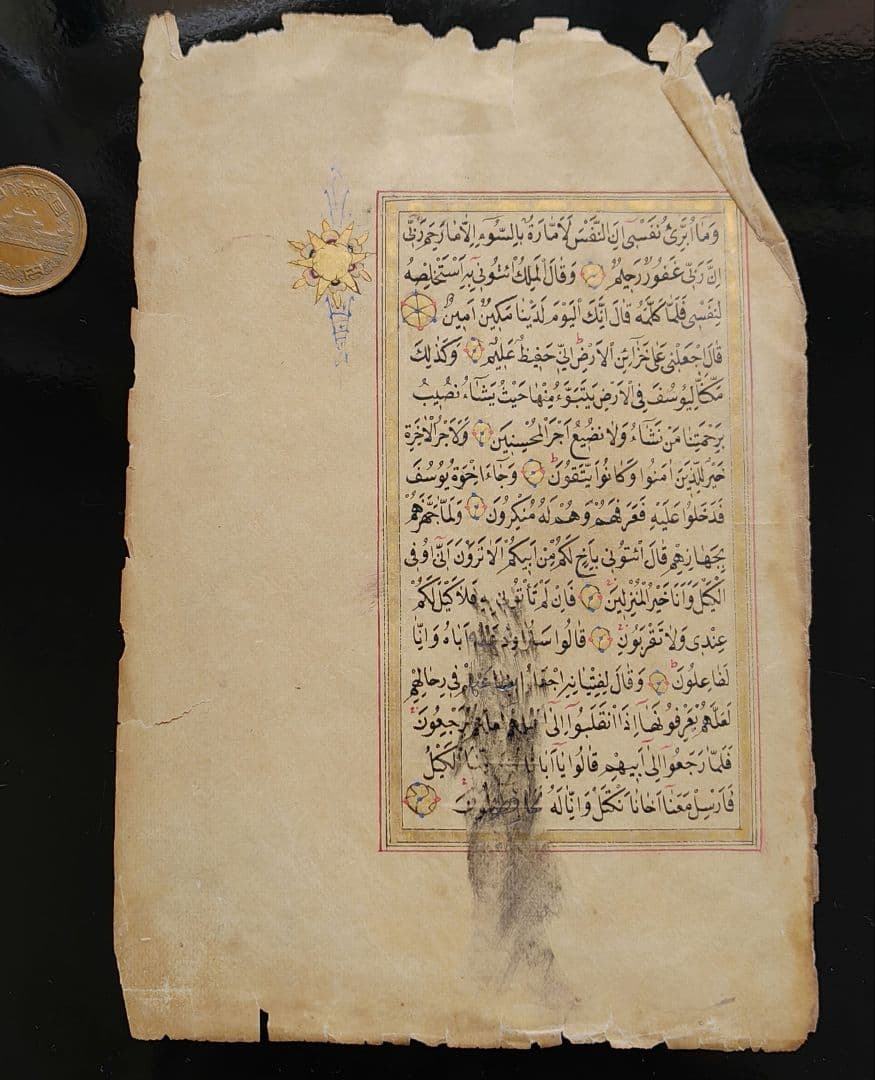 وَمَا اُبَرِّئُ نَفْسٖى اِنَّ النَّفْسَ لَاَمَّارَةٌ بِالسُّوءِ اِلَّا مَا رَحِمَ رَبّٖى
اِنَّ رَبّٖى غَفُورٌ رَحٖيمٌ وَقَالَ الْمَلِكُ ائْتُونٖى بِهٖ اَسْتَخْلِصْهُ
لِنَفْسٖى فَلَمَّا كَلَّمَهُ قَالَ اِنَّكَ الْيَوْمَ لَدَيْنَا مَكٖينٌ اَمٖينٌ
قَالَ اجْعَلْنٖى عَلٰى خَزَائِنِ الْاَرْضِ اِنّٖى حَفٖيظٌ عَلٖيمٌ وَكَذٰلِكَ
مَكَّنَّا لِيُوسُفَ فِى الْاَرْضِ يَتَبَوَّءُ مِنْهَا حَيْثُ يَشَاءُ نُصٖيبُ
بِرَحْمَتِنَا مَنْ نَشَاءُ وَلَا نُضٖيعُ اَجْرَ الْمُحْسِنٖينَ وَلَاَجْرُ الْاٰخِرَةِ
خَيْرٌ لِلَّذٖينَ اٰمَنُوا وَكَانُوا يَتَّقُونَ وَجَاءَ اِخْوَةُ يُوسُفَ
فَدَخَلُوا عَلَيْهِ فَعَرَفَهُمْ وَهُمْ لَهُ مُنْكِرُونَ وَلَمَّا جَهَّزَهُمْ
بِجَهَازِهِمْ قَالَ ائْتُونٖى بِاَخٍ لَكُمْ مِنْ اَبٖيكُمْ اَلَا تَرَوْنَ اَنّٖى اُوفِى
الْكَيْلَ وَاَنَا خَيْرُ الْمُنْزِلٖينَ فَاِنْ لَمْ تَأْتُونٖى بِهٖ فَلَا كَيْلَ لَكُمْ
عِنْدٖى وَلَا تَقْرَبُونِ قَالُوا سَنُرَاوِدُ عَنْهُ اَبَاهُ وَاِنَّا
لَفَاعِلُونَ وَقَالَ لِفِتْيَانِهِ اجْعَلُوا فٖى رِحَالِهِمْ
لَعَلَّهُمْ يَعْرِفُونَهَا اِذَا انْقَلَبُوا اِلٰى اَهْلِهِمْ لَعَلَّهُمْ يَرْجِعُونَ
فَلَمَّا رَجَعُوا اِلٰى اَبٖيهِمْ قَالُوا يَا اَبَانَا الْكَيْلُ
فَاَرْسِلْ مَعَنَا اَخَانَا نَكْتَلْ وَاِنَّا لَهُ لَحَافِظُونَ